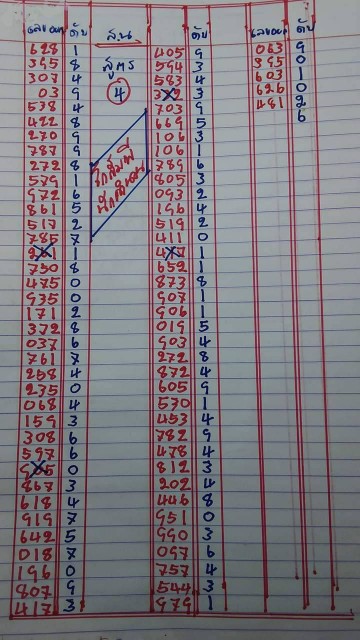 เลขออก ดับ
628 1
395 8
307 4
03 9
538 4
422 8
270 9
787 9
272 8
579 1
972 6
861 5
517 2
785 7
1
750 8
475 0
935 0
171 2
372 8
037 6
761 7
258 4
235 0
068 4
159 3
308 6
597 6
0
867 3
618 4
919 7
642 5
018 7
196 0
807 9
417 3
บน
สูตร
4
ดับ
405 9
594 3
583 4
3
703 9
669 5
106 3
106 1
789 6
805 3
093 2
196 4
519 2
411 0
1
652 1
873 8
907 1
906 1
019 5
903 4
272 8
872 4
605 9
530 1
453 4
782 9
478 4
812 3
202 4
446 8
951 0
990 3
097 6
757 4
544 3
979 1
เลขออก ดับ
063 9
395 0
603 1
626 0
481 2
6